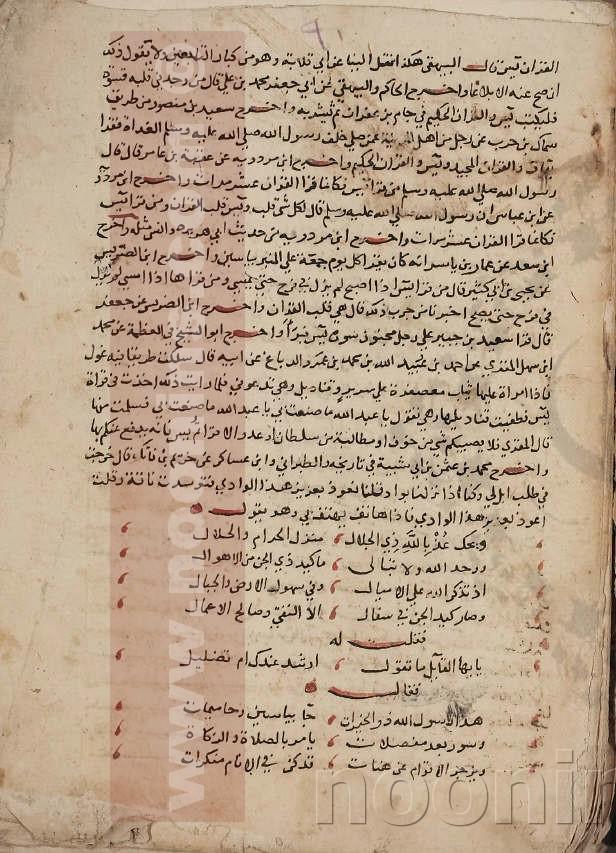 القران يس قال البيهقي هكذا نقل الينا عن ابي قلابة وهو من كبار التابعين ولا يقول ذلك
ان صح عنه الا بلاغا واخرج الحاكم والبيهقي عن ابي جعفر محمد بن علي قال من وجد في قلبه قسوة
فليكتب يس والقران الحكيم في جام بزعفران ثم يشربه واخرج سعيد بن منصور من طريق
سماك بن حرب عن رجل من اهل المدينة عمن صلي خلف رسول الله صلي الله عليه وسلم الغداة فقرا
بقاف والقران المجيد ويس والقران الحكيم واخرج ابن مردويه عن عقبة بن عامر قال قال
رسول الله صلي الله عليه وسلم من قرا يس فكانما قرا القران عشر مرات واخرج ابن مردويه
عن ابن عباس ان رسول الله صلي الله عليه وسلم قال لكل شي قلب وقلب القران ومن قرا يس
فكانما قرا القران عشر مرات واخرج ابن مردويه من حديث ابي هريرة وانس مثله واخرج
ابن سعد عن عمار بن ياسر انه كان يقرا كل يوم جمعة علي المنبر يس واخرج ابن الضريس
عن يحيي بن ابي كثير قال من قرا يس اذا اصبح لم يزل في فرح حتي يمسي ومن قراها اذا امسي لم يزل
في فرح حتي يصبح اخبرنا من جرب ذلك قال هي قلب القران واخرج ابن الضريس عن جعفر
قال قرا سعيد بن جبير علي رجل مجنون سورة يس فبرا واخرج ابو الشيخ في العظمة عن محمد
ابن سهل المقري عن احمد بن عبيد الله بن محمد بن عمرو الدباغ عن ابيه قال سلكت طريقا فيه غول
فاذا امراة عليها ثياب معصفرة علي سرير وقناديل وهي تدعوني فلما رايت ذلك اخذت في قراة
يس فطفيت قناديلها وهي تقول يا عبد الله ما صنعت بي يا عبد الله ما صنعت بي فسلمت منها
قال المقري فلا يصيبكم شي من خوف او مطالبة من سلطان او عدو الا قراتم يس فانه يدفع عنكم بها
واخرج محمد بن عثمن بن ابي شيبة في تاريخه والطبراني وابن عساكر عن خريم بن فاتك قال خرجت
في طلب ابل لي وكنا اذا نزلنا بواد قلنا نعوذ بعزيز هذا الوادي فتوسدت ناقة وقلت
اعوذ بعزيز هذا الوادي فاذا هاتف يهتف بي وهو يقول
ويحك عذ بالله ذي الجلال منزل الحرام والحلال
ووحد الله ولا تبالي ما كيد ذي الجن من الاهوال
اذ تذكر الله علي الاميال وفي سهول الارض والجبال
وصار كيد الجن في سفال الا التقي وصالح الاعمال
فقلت له
يا ايها القايل ما تقول ارشد عندك ام تضليل
فقال
هذا رسول الله ذو الخيرات جا بياسين وحاميمات
وسور بعد مفصلات يامر بالصلاة والزكاة
ويزجر الاقوام عن هنات قد كن في الانام منكرات
noonin